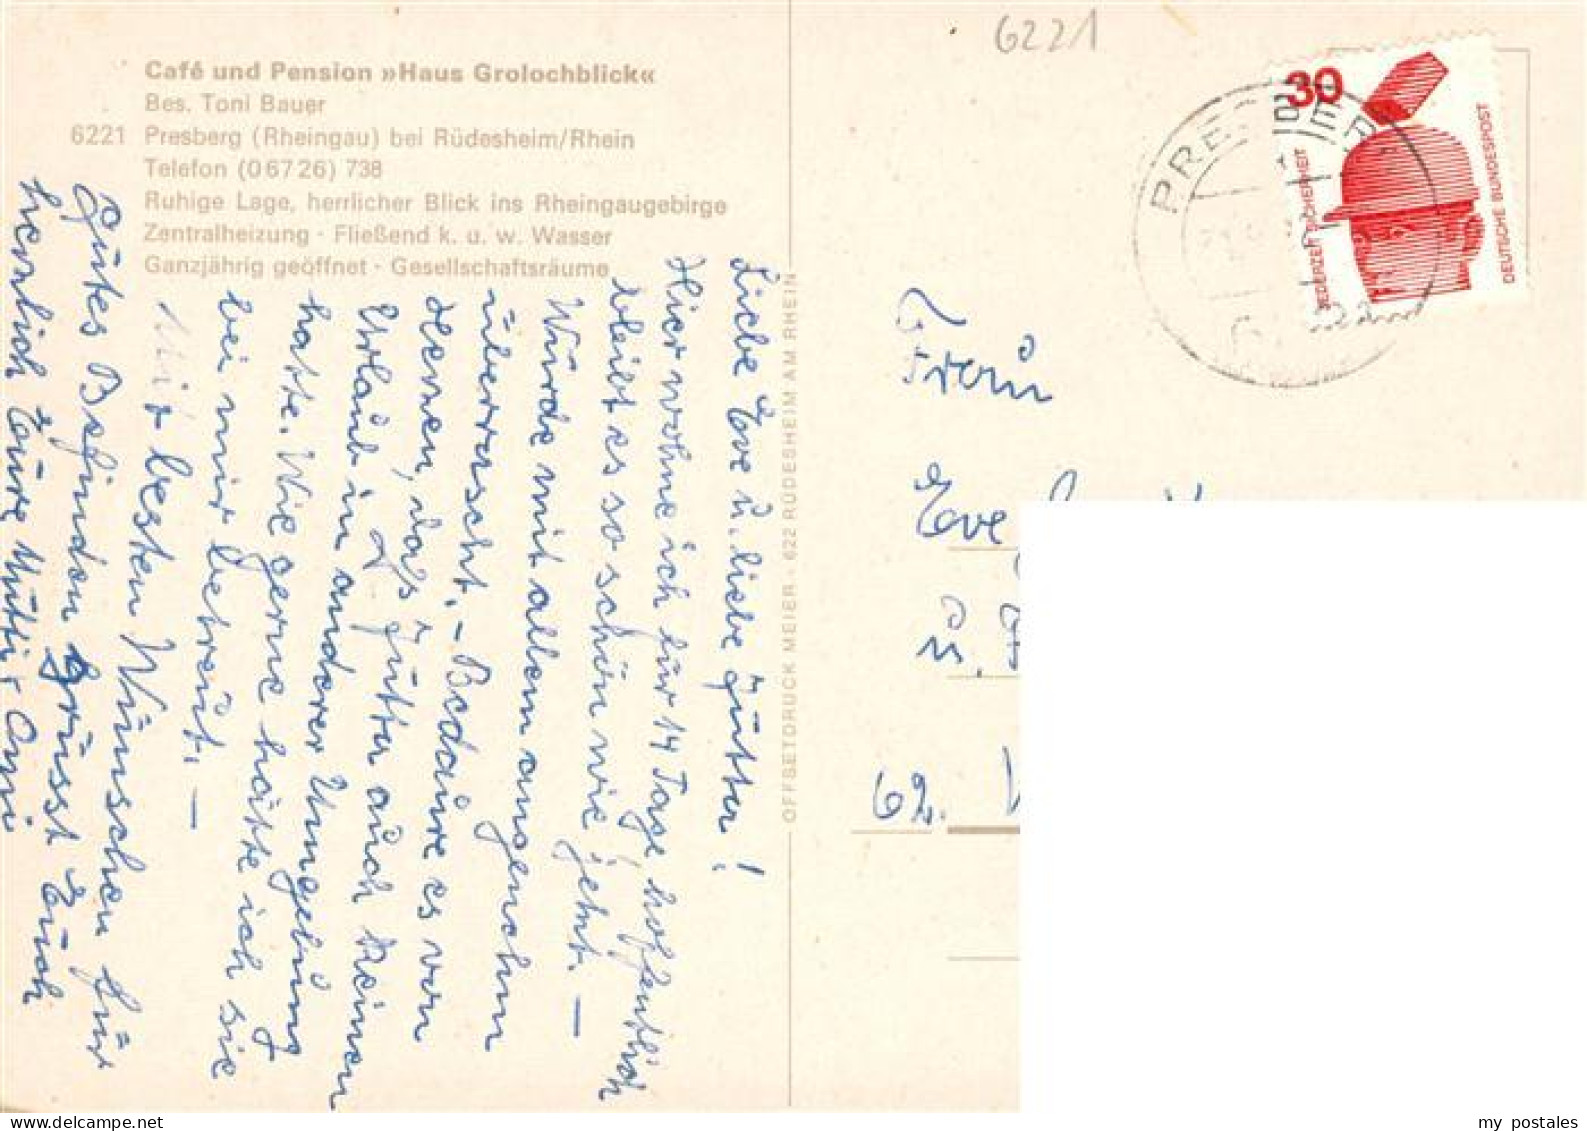 Café und Pension »Haus Grolochblick«
Bes. Toni Bauer
6221 Presberg (Rheingau) bei Rüdesheim/Rhein
Telefon (06726) 738
Ruhige Lage, herrlicher Blick ins Rheingaugebirge
Zentralheizung · Fließend k. u. w. Wasser
Ganzjährig geöffnet · Gesellschaftsräume
Liebe Eve u. liebe Jutta!
Hier wohne ich für 14 Tage, hoffentlich
bleibt es so schön wie jetzt. –
Würde mit allem angenehm
überrascht. – Bedaure es von
Herzen, dass Jutta auch keinen
Urlaub in anderer Umgebung
hatte. Wie gerne hätte ich sie
bei mir betreut. –
Mit besten Wünschen für
gutes Befinden grüsst Euch
herzlich Eure Mutti + Omi
OFFSETDRUCK MEIER · 622 RÜDESHEIM AM RHEIN
6221
30
JEDERZEIT SICHERHEIT
DEUTSCHE BUNDESPOST
PRESBERG
Frau
Eve
u.
62.
my postales